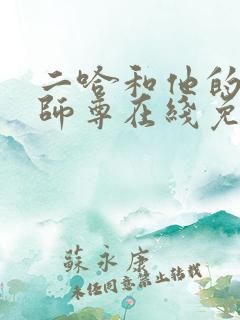 二哈和他的
師尊在綫免
蘇永康
未经同意禁止转载